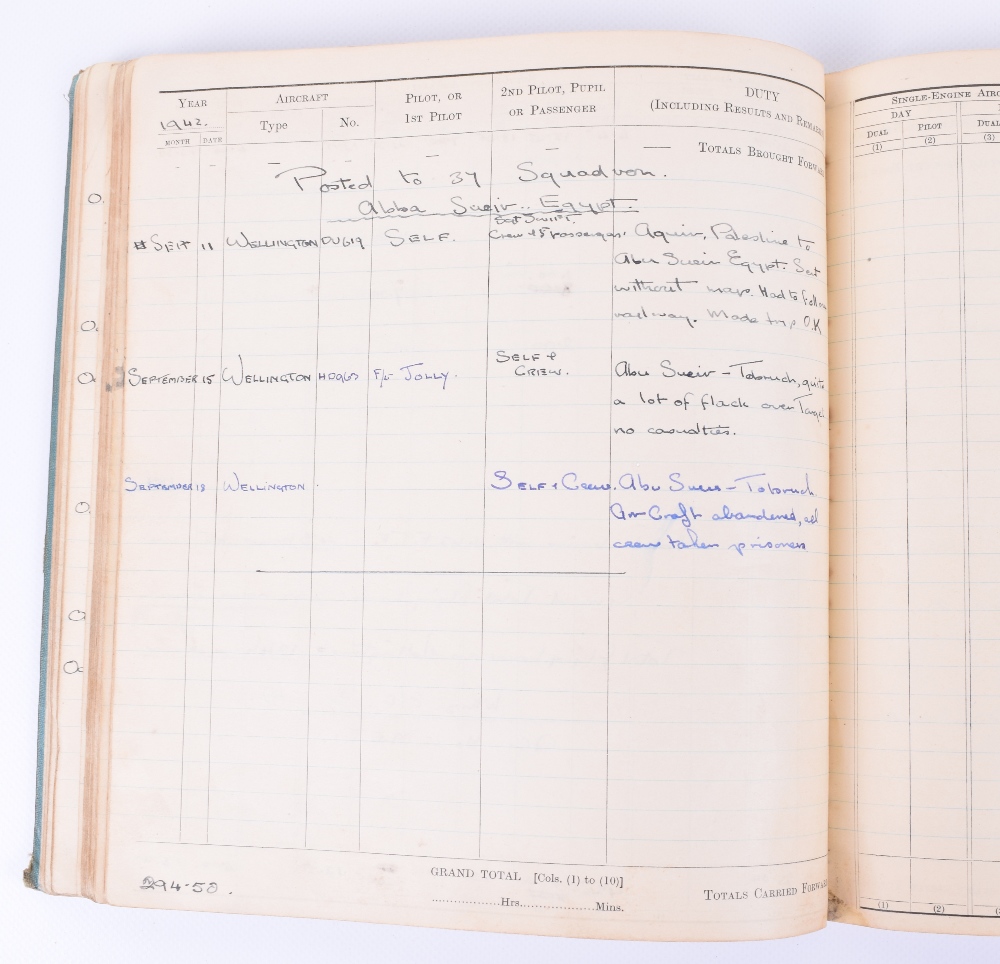 YEAR AIRCRAFT PILOT, OR 1ST PILOT 2ND PILOT, PUPIL OR PASSENGER DUTY (INCLUDING RESULTS AND REMARKS
1942. Type No.
MONTH DATE
TOTALS BROUGHT FORWA
Posted to 37 Squadron.
Abba Sueir.. Egypt.
Sgt Swift.
SEPT 11 WELLINGTON DV619 SELF. Crew + 5 Passengers. Aquir, Palestine to
Abu Sueir Egypt. Sent
without maps. Had to follow
railway. Made trip O.K
SEPTEMBER 15 WELLINGTON F/LT JOLLY. SELF + CREW. Abu Sueir – Tobruch, quite
a lot of flack over Target
no casualties.
SEPTEMBER 19 WELLINGTON. SELF + Crew. Abu Sueir – Tobruch
Air Craft abandoned, all
crew taken prisoners
294-50.
GRAND TOTAL [Cols. (1) to (10)]
..................Hrs...................Mins.
TOTALS CARRIED FORWAR
SINGLE-ENGINE AIRC
DAY
DUAL PILOT DUAL
(1) (2) (3)
(1) (2)